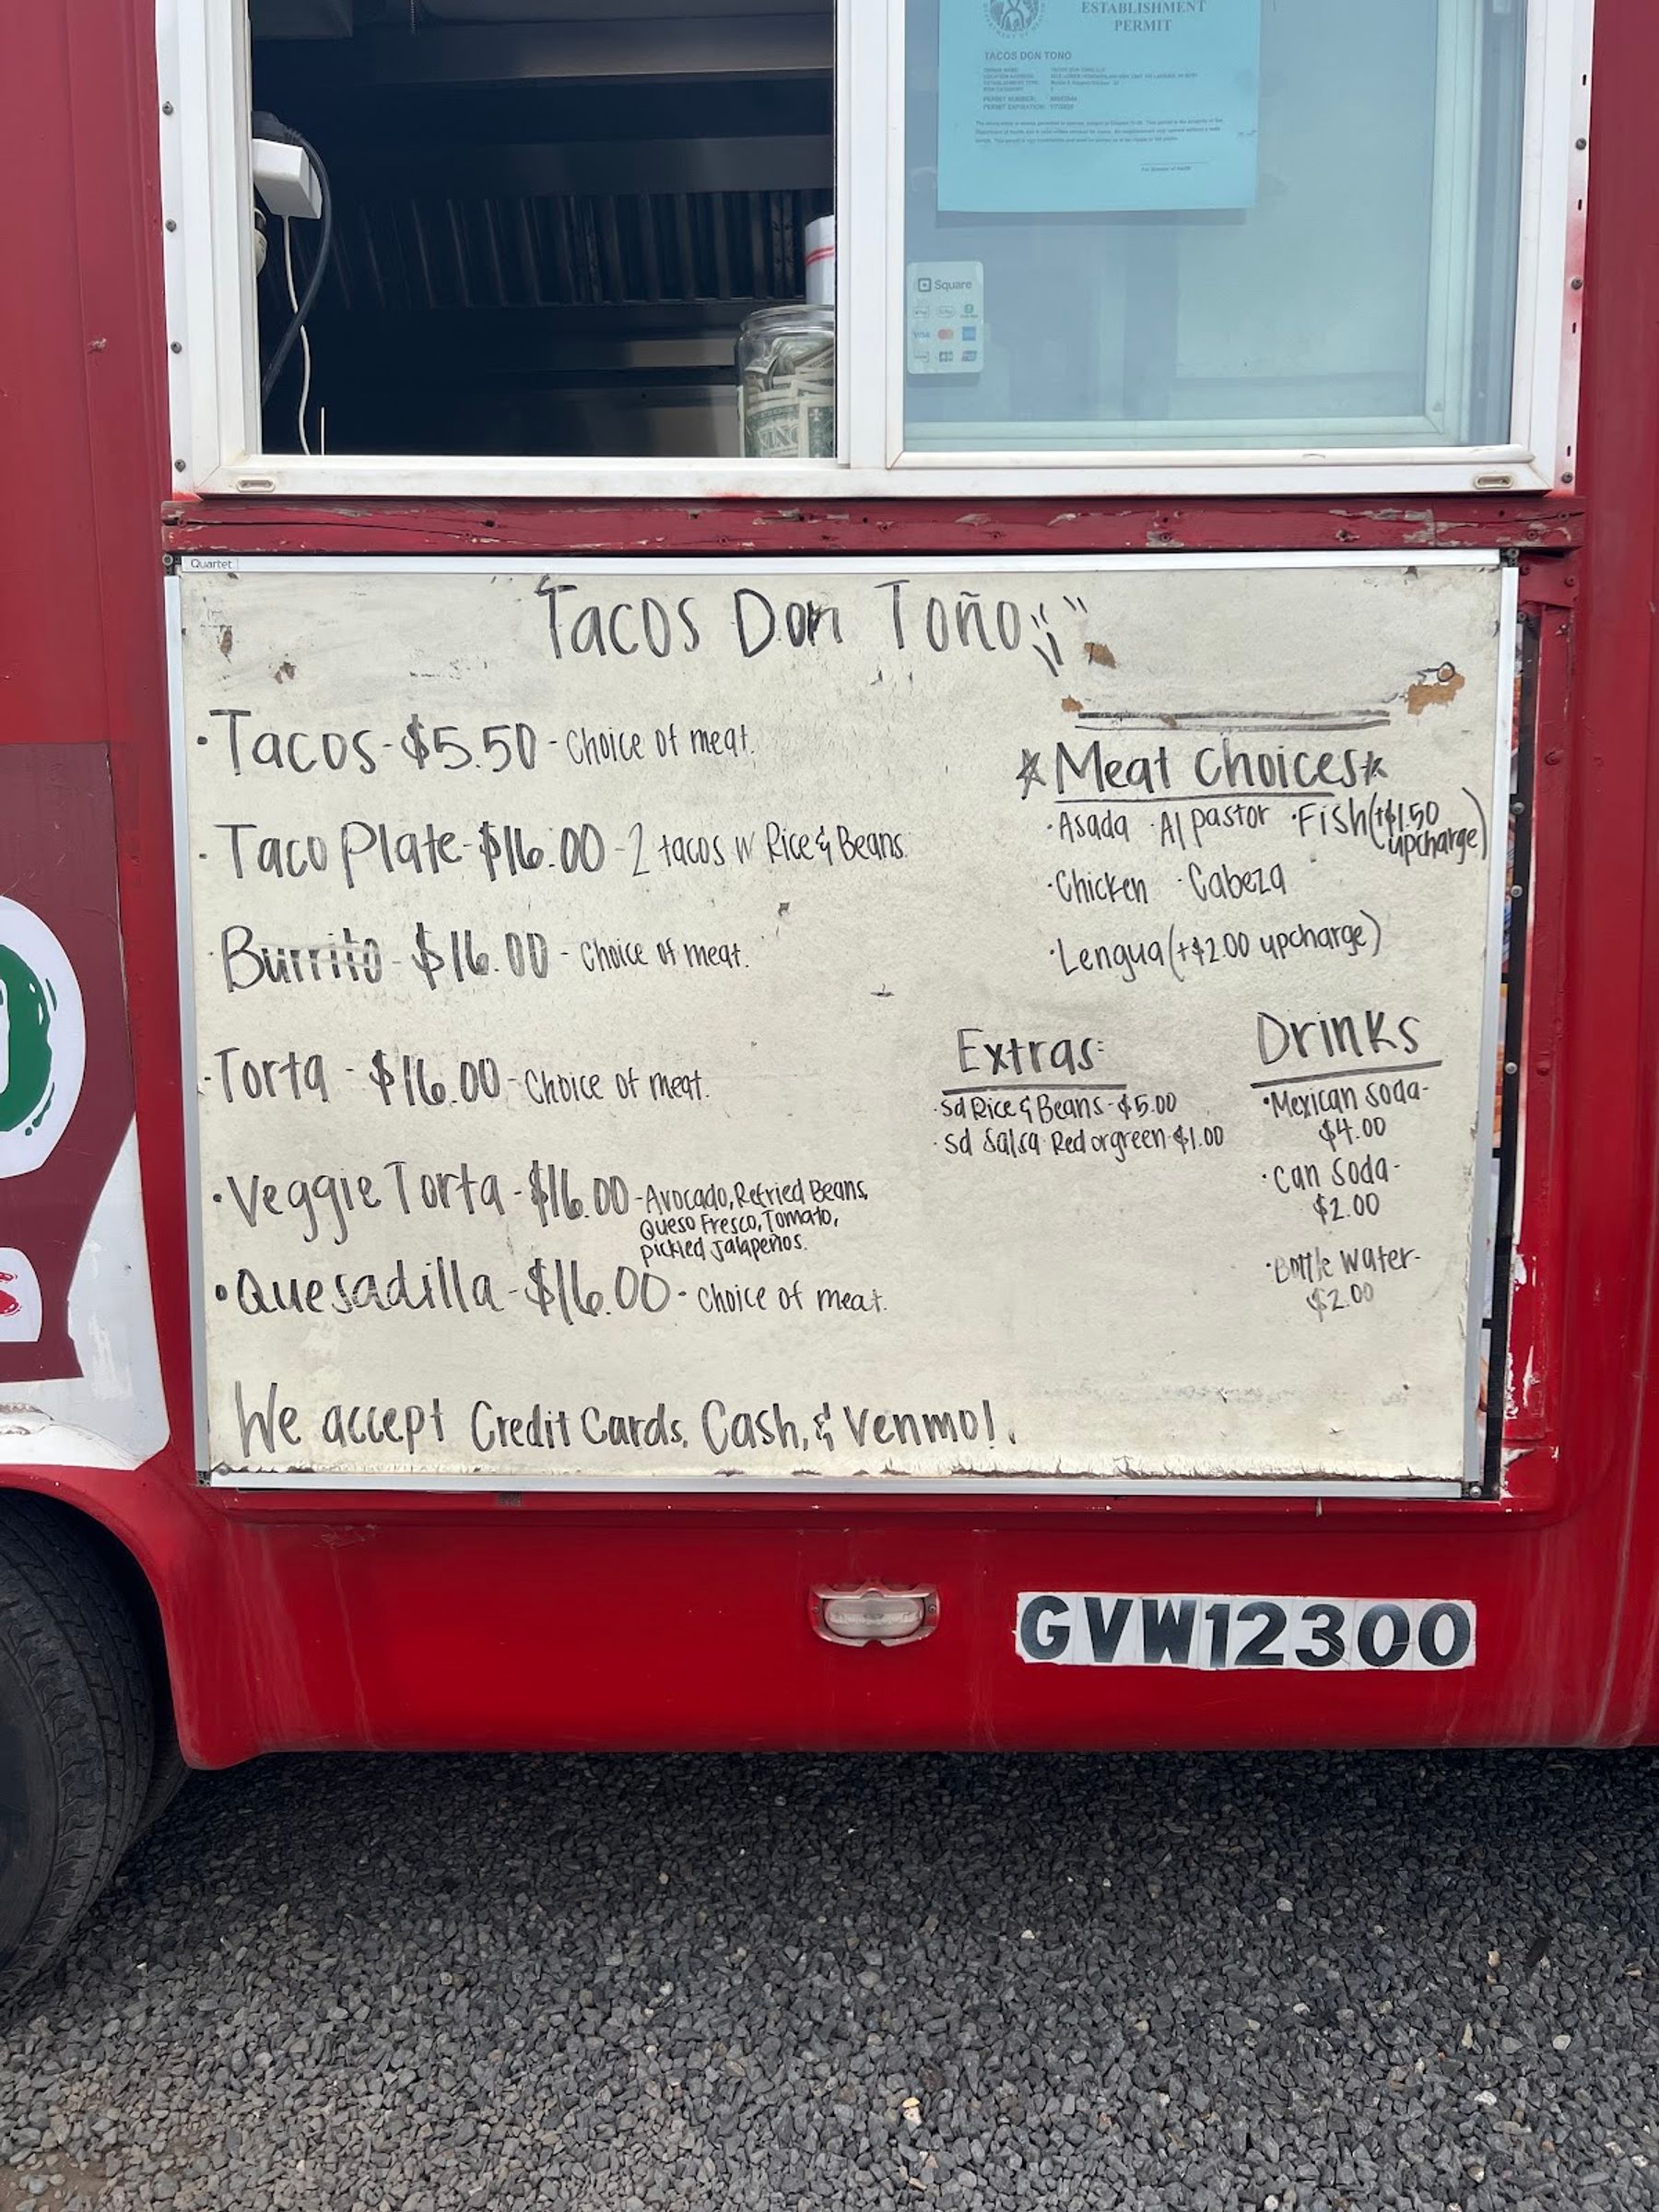 ESTABLISHMENT
PERMIT
TACOS DON TONO
PERMIT NUMBER:
PERMIT EXPIRATION:
Square
VISA
Quartet
Tacos Don Toño
·Tacos-$5.50-Choice of meat.
·Taco Plate-$16.00-2 tacos w Rice & Beans.
·Burrito-$16.00-Choice of meat.
·Torta-$16.00-Choice of meat.
·Veggie Torta-$16.00-Avocado, Refried Beans,
Queso Fresco, Tomato,
pickled Jalapeños.
·Quesadilla-$16.00-Choice of meat.
Meat Choices
·Asada ·Al pastor ·Fish(+$1.50
upcharge)
·Chicken ·Cabeza
·Lengua(+$2.00 upcharge)
Extras:
·sd Rice & Beans-$5.00
·sd Salsa Red or green-$1.00
Drinks
·Mexican Soda-
$4.00
·Can Soda-
$2.00
·Bottle Water-
$2.00
We accept Credit Cards, Cash, & Venmo!.
GVW12300